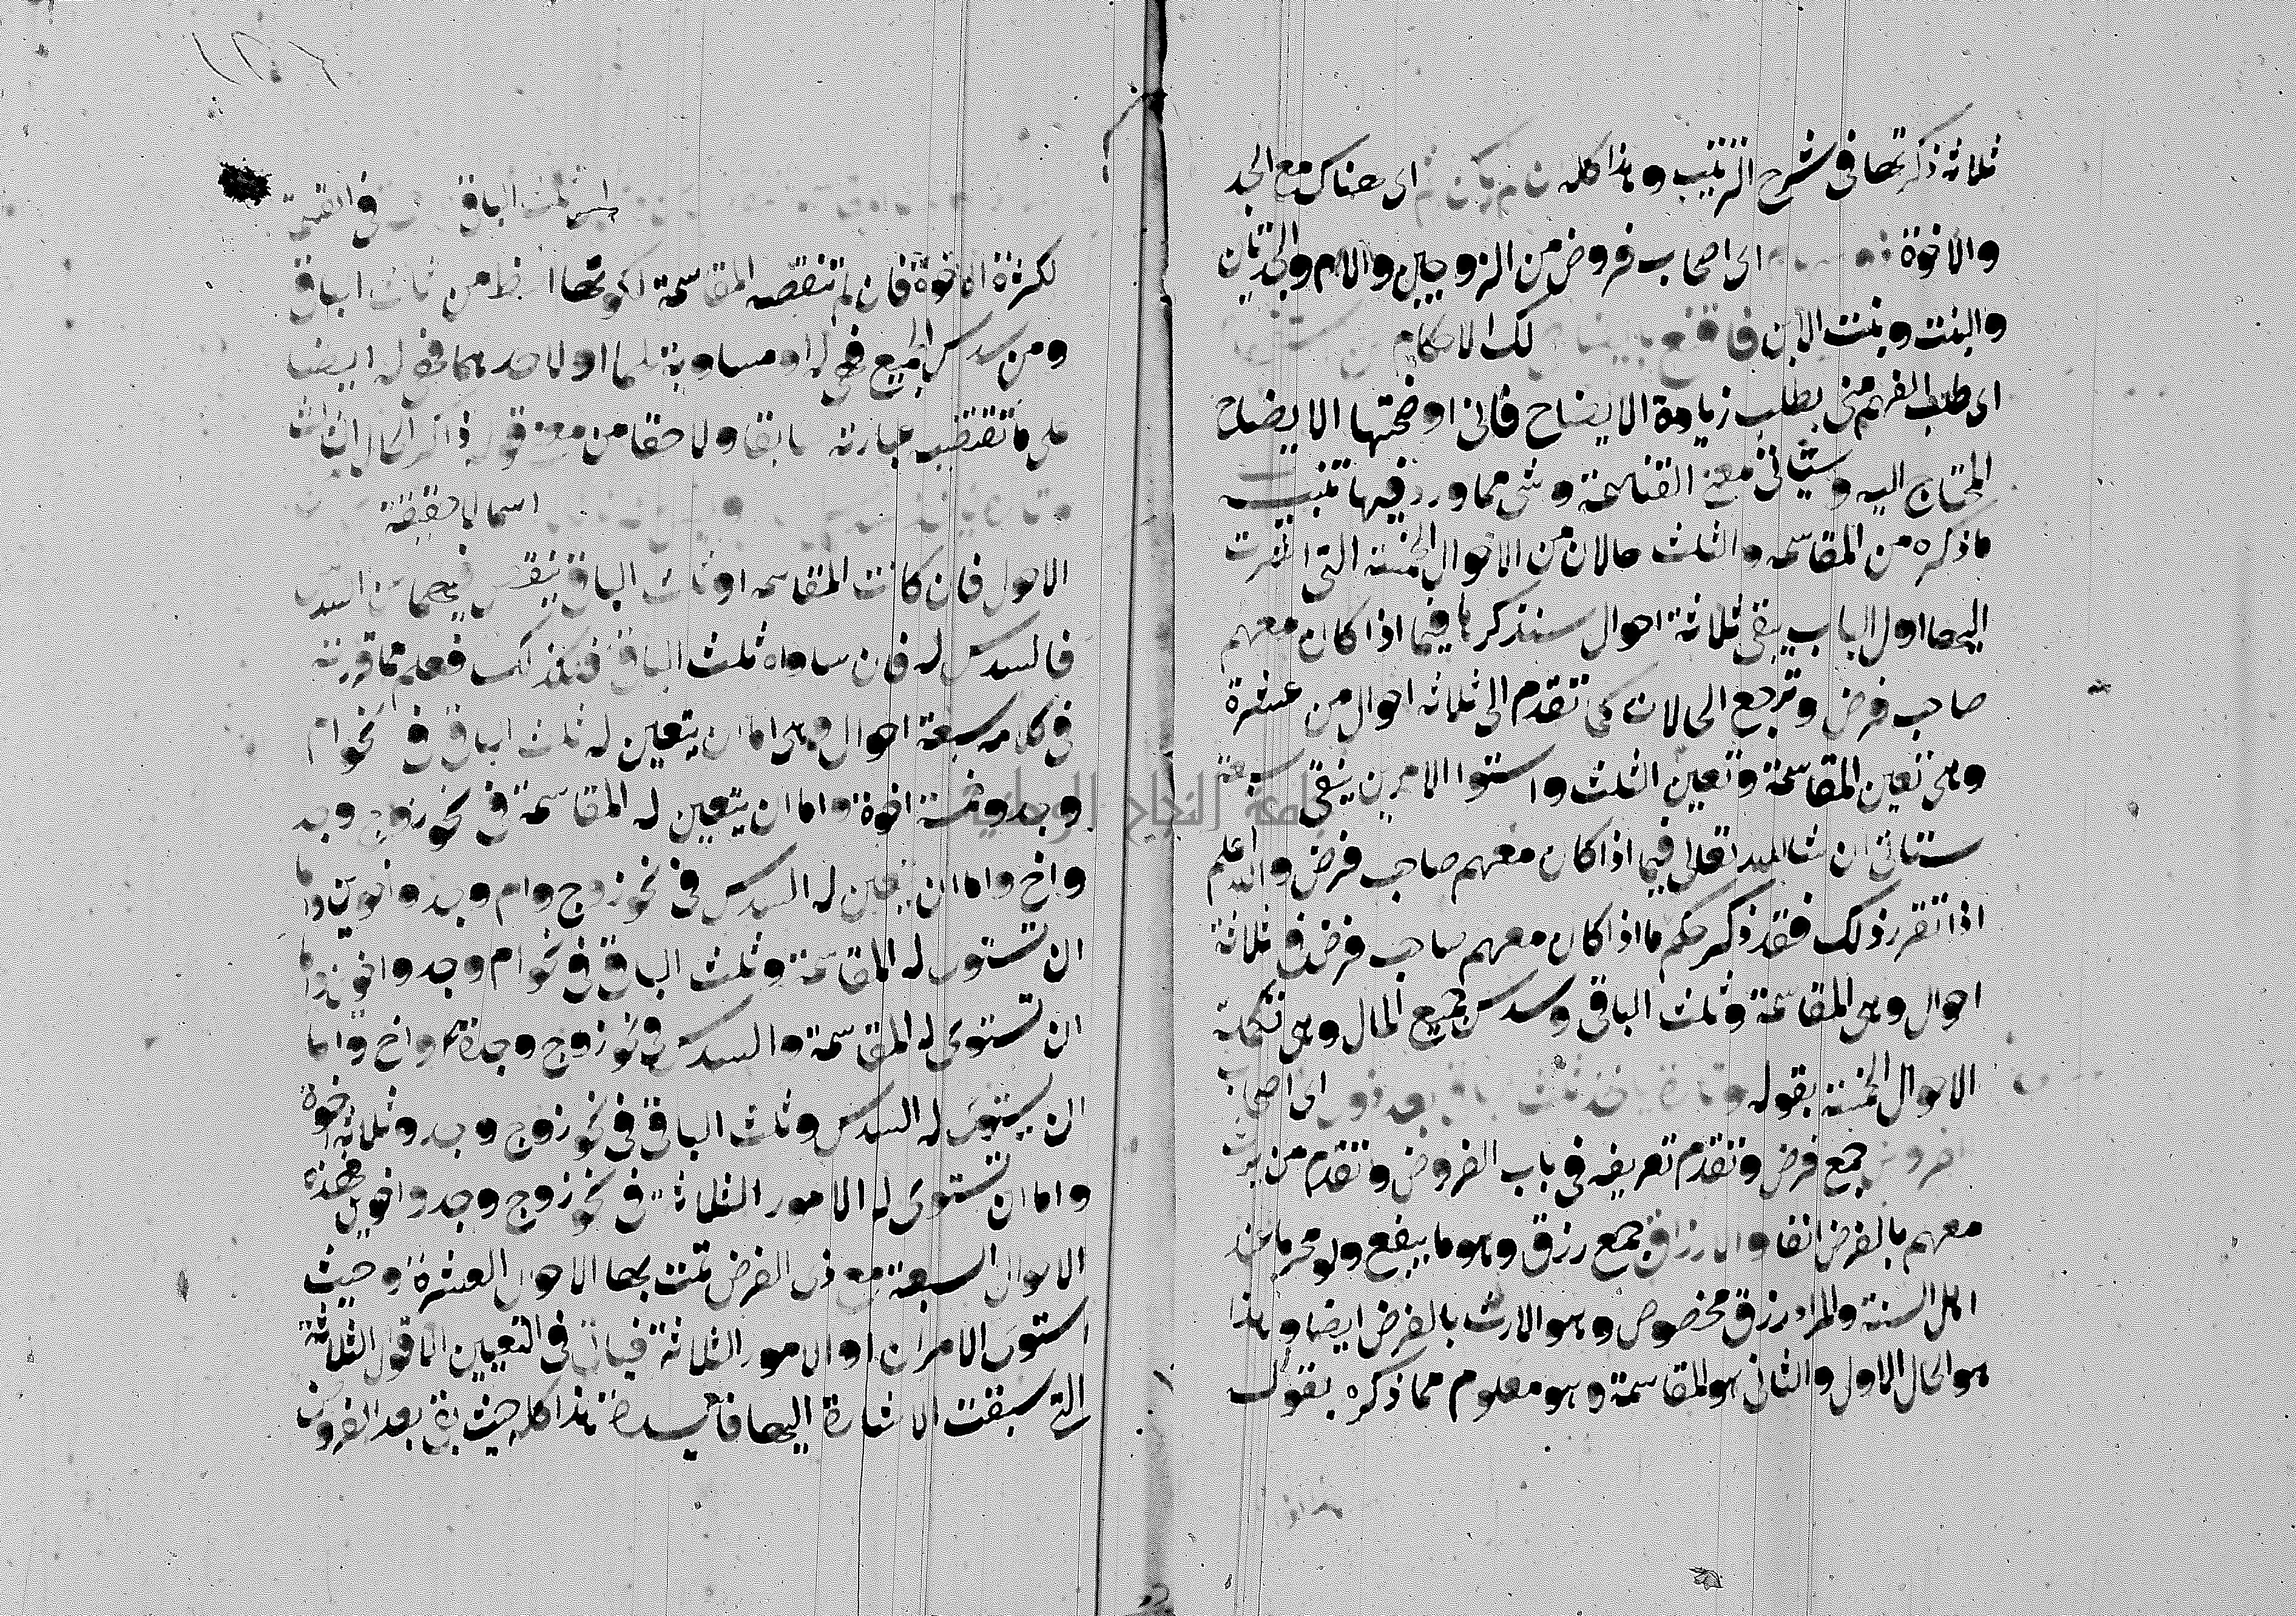 ثلاثة ذكرتها في شرح الترتيب وهذا كله ان لم يكن ثم اي هناك مع الجد
والاخوة اي اصحاب فروض من الزوجين والام والجدتان
والبنت وبنت الابن فاقنع بايضاحي لك الاحكام
اي طلب الفهم مني بطلب زيادة الايضاح فاني اوضحتها الايضاح
المحتاج اليه وسيأتي معنى القناعة وشي مما ورد فيها تنبيه
ما ذكره من المقاسمه والثلث حالان من الاحوال الخمسة التي اشرت
اليها اول الباب يبقى ثلاثة احوال سنذكرها فيما اذا كان معهم
صاحب فرض وترجع الحالات كما تقدم الى ثلاثة احوال من عشرة
وهي تعين المقاسمة وتعين الثلث واستوا الامرين يبقى سبعة
ستاتي ان شا الله تعالى فيما اذا كان معهم صاحب فرض والله اعلم
اذا تقرر ذلك فقد ذكر حكم ما اذا كان معهم صاحب فرض في ثلاثة
احوال وهي المقاسمة وثلث الباقي وسدس جميع المال وهي تكملة
الاحوال الخمسة بقوله وتارة ياخذ ثلث الباقي بعد ذوي اي اصحاب
الفروض جمع فرض وتقدم تعريفه في باب الفروض وتقدم من يرث
معهم بالفرض انفا والارزاق جمع رزق وهو ما ينفع ولو محرما عند
اهل السنة والمراد رزق مخصوص وهو الارث بالفرض ايضا وهذا
هو الحال الاول والثاني هو المقاسمة وهو معلوم مما ذكره بقوله
ثلث الباقي في القسمة
لكثرة الاخوة فان لم تنقصه المقاسمة لكونها احظ من ثلث الباقي
ومن سدس الجميع فهي له او مساوية لهما او لاحدهما فهي له ايضا
على ما تقتضيه عبارته سابقا ولاحقا من معنى قوله ذاكر الحال الثالث
اسما لا حقيقة
الاحول فان كانت المقاسمه او ثلث الباقي ينقص فيهما عن السدس
فالسدس له فان ساواه ثلث الباقي فكذلك فعلم مما قررته
في كلامه سبعة احوال وهي اما ان يتعين له ثلث الباقي في نحو ام
وجد وخمسة اخوة واما ان يتعين له المقاسمة في نحو زوج وجد
واخ واما ان يتعين له السدس في نحو زوج وام وجد واخوين واما
ان تستوي له المقاسمة وثلث الباقي في نحو ام وجد واخوين واما
ان تستوي له المقاسمة والسدس في نحو زوج وجدة وجد واخ واما
ان يستوي له السدس وثلث الباقي في نحو زوج وجد وثلاثة اخوة
واما ان تستوي له الامور الثلاثة في نحو زوج وجد واخوين فهذه
الاحوال السبعة مع ذي الفرض تمت بها الاحوال العشرة وحيث
استوى الامران او الامور الثلاثة فيأتي في التعبير الاقوال الثلاثة
التي سبقت الاشارة اليها فائدة هذا كله حيث بقي بعد الفروض
جامعة النجاح الوطنية